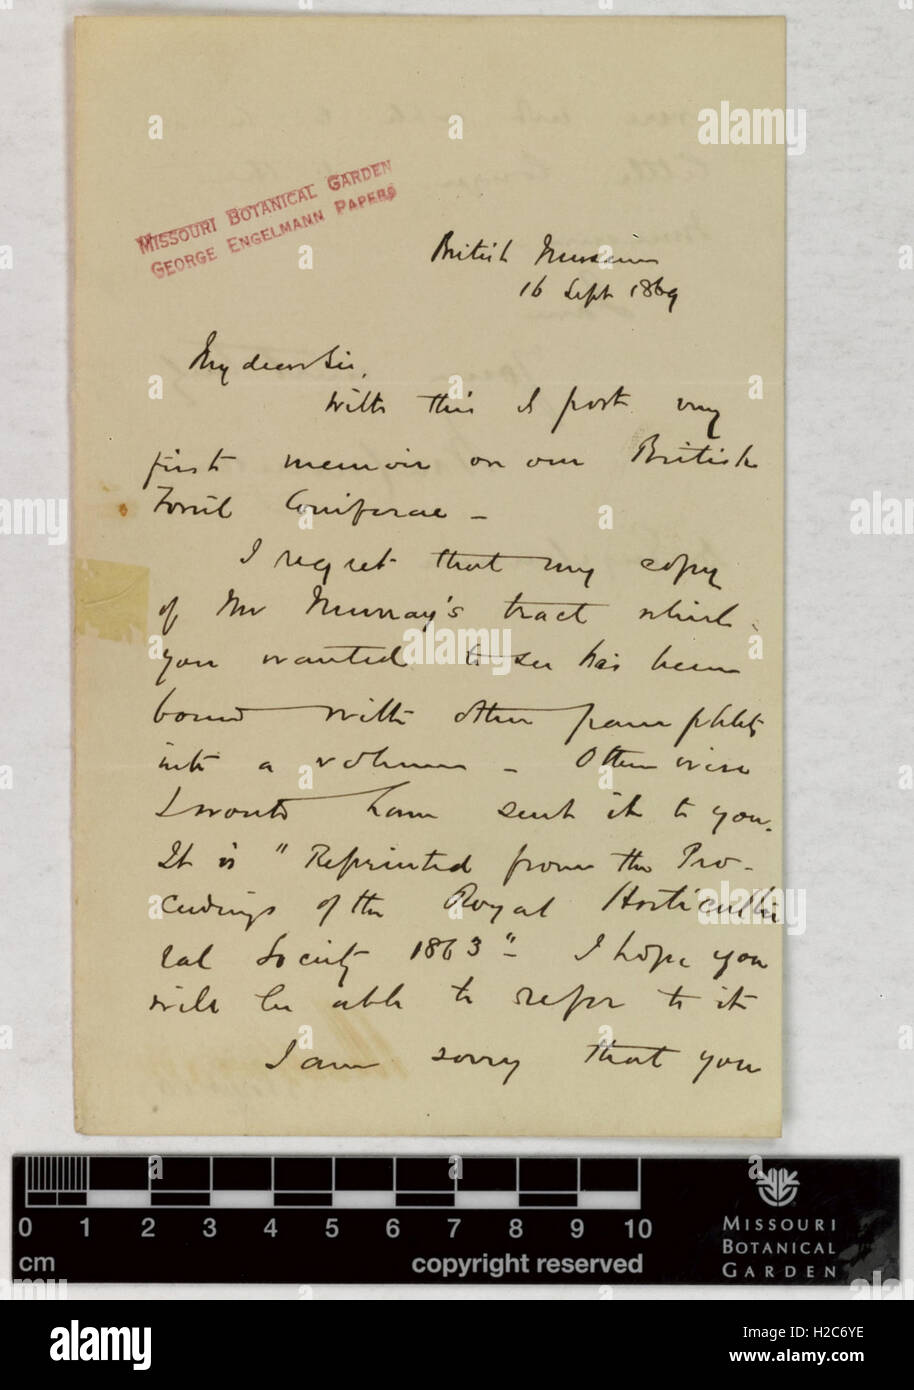 MISSOURI BOTANICAL GARDEN
GEORGE ENGELMANN PAPERS
British Museum
16 Sept 1869
My dear Sir,
With this I post my
first memoir on our British
Fossil Coniferae –
I regret that my copy
of Mr Murray's tract which
you wanted to see has been
bound with other pamphlets
into a volume – Otherwise
I would have sent it to you.
It is "Reprinted from the Pro-
ceedings of the Royal Horticultu
ral Society 1863" – I hope you
will be able to refer to it
I am sorry that you
0 1 2 3 4 5 6 7 8 9 10
cm
copyright reserved
MISSOURI
BOTANICAL
GARDEN
alamy
Image ID: H2C6YE
www.alamy.com